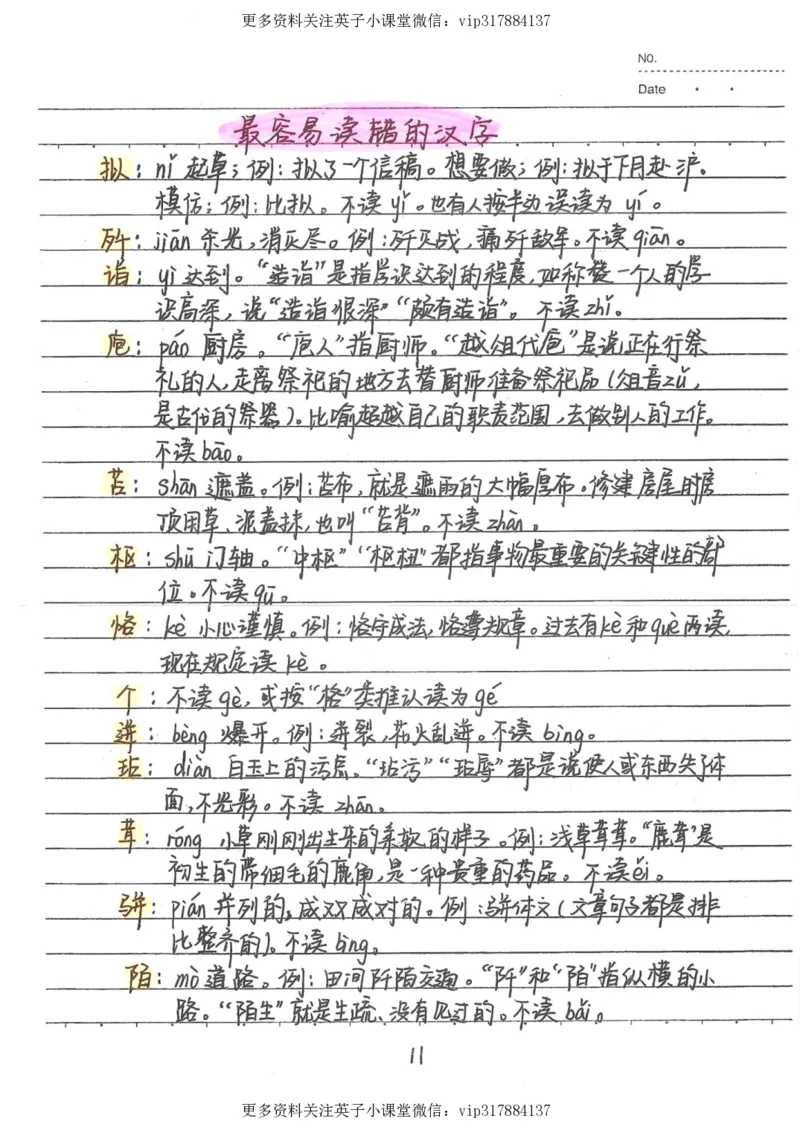 更多资料关注英子小课堂微信：vip317884137
No.
Date
最容易读错的汉字
拟：nǐ 起草；例：拟了一个信稿。想要做；例：拟于下月赴沪。
模仿；例：比拟。不读 yǐ。也有人按半边误读为 yí。
歼：jiān 杀光，消灭尽。例：歼灭战，痛歼敌军。不读qiān。
诣：yì 达到。“造诣”是指学识达到的程度，如称赞一个人的学
识高深，说“造诣很深”“颇有造诣”。不读zhǐ。
庖：páo 厨房。“庖人”指厨师。“越俎代庖”是说正在行祭
礼的人，走离祭祀的地方去替厨师准备祭祀品（俎音zǔ，
是古代的祭器）。比喻超越自己的职责范围，去做别人的工作。
不读bāo。
苫：shān 遮盖。例：苫布，就是遮雨的大幅厚布。修建房屋时房
顶用草、泥盖抹，也叫“苫背”。不读zhān。
枢：shū 门轴。“中枢”“枢纽”都指事物最重要的关键性的部
位。不读qū。
恪：kè 小心谨慎。例：恪守成法，恪遵规章。过去有kè和què两读，
现在规定读kè。
个：不读gè，或按“格”类推认读为gé
迸：bèng 爆开。例：迸裂，花火乱迸。不读bìng。
玷：diàn 白玉上的污点。“玷污”“玷辱”都是说使人或东西失了体
面，不光彩。不读zhān。
茸：róng 小草刚刚出生来的柔软的样子。例：浅草茸茸。“鹿茸”是
初生的带细毛的鹿角，是一种贵重的药品。不读ěi。
骈：pián 并列的，成双成对的。例：骈体文（文章句子都是排
比整齐的）。不读bìng。
陌：mò 道路。例：田间阡陌交通。“阡”和“陌”指纵横的小
路。“陌生”就是生疏、没有见过的。不读bǎi。
11
更多资料关注英子小课堂微信：vip317884137